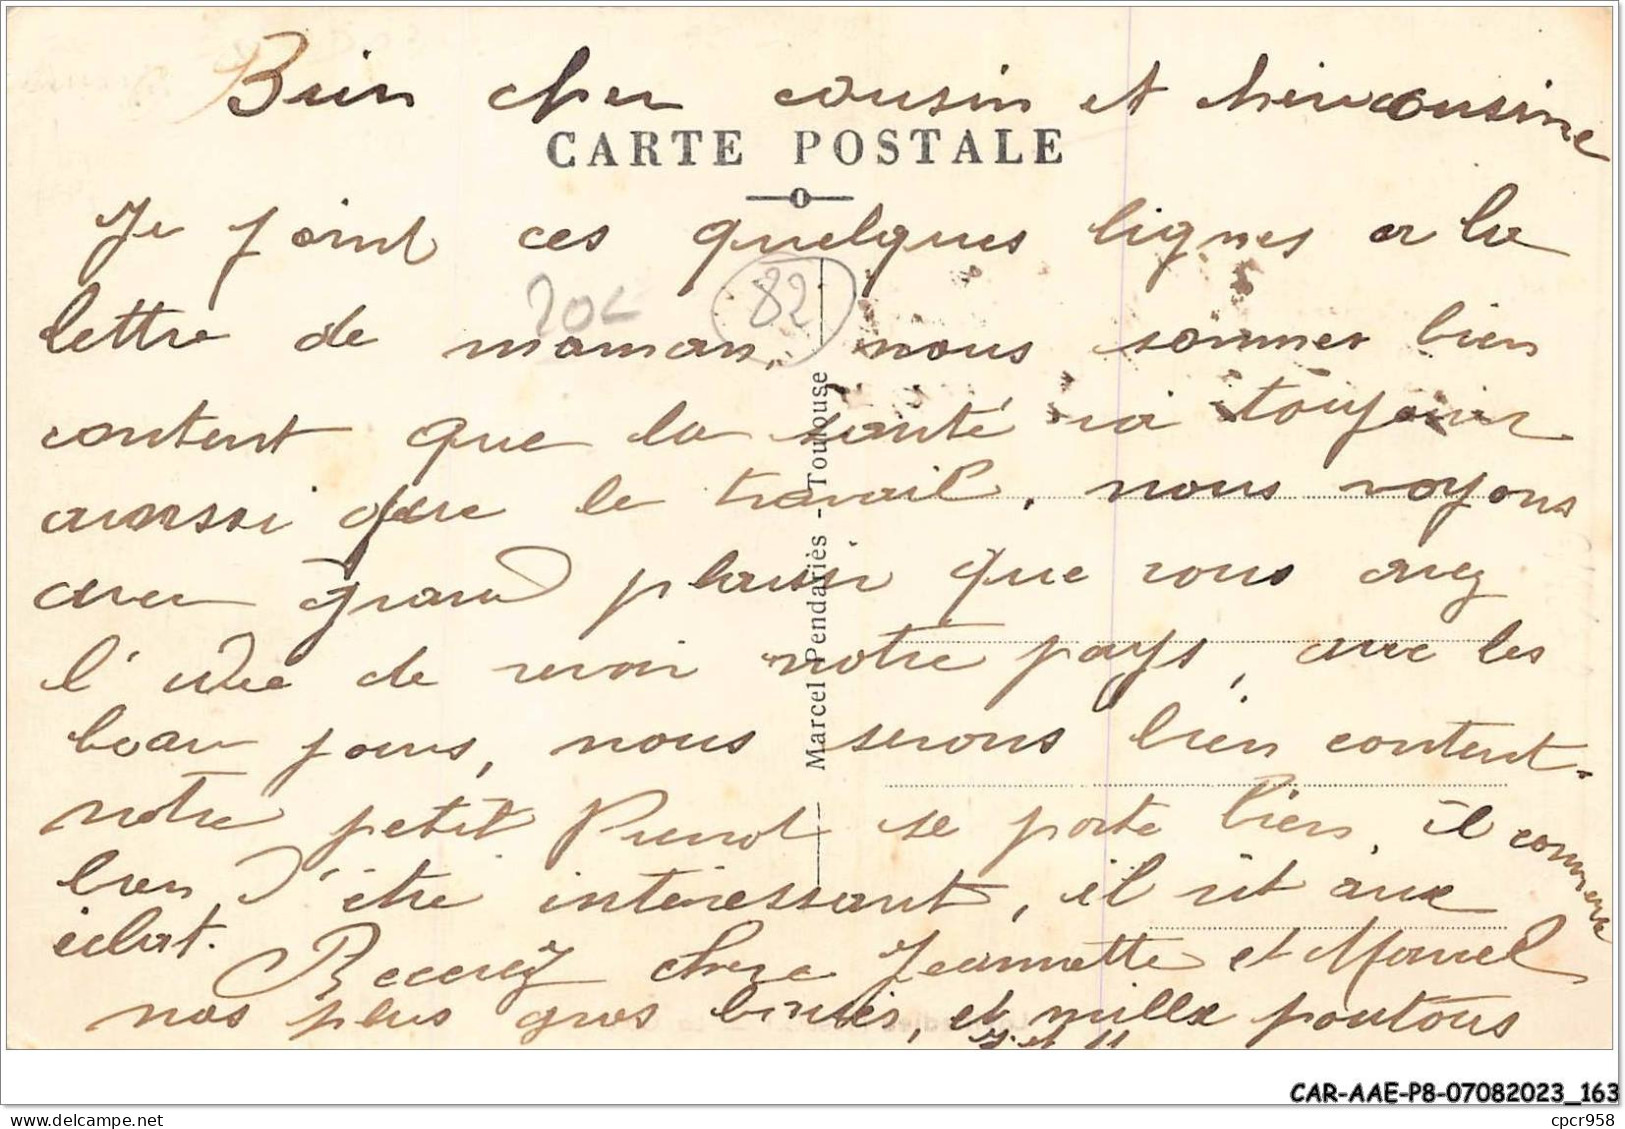 Bien cher cousin et chere cousine
CARTE POSTALE
Je joint ces quelques lignes a la
82
20
lettre de maman, nous sommes bien
content que la santé va toujours
aussi que le travail, nous voyons
avec grand plaisir que vous avez
l'idée de revoir notre pays, avec les
beau jours, nous serons bien content.
notre petit Pierrot se porte bien, il commence
bien d'être intéressant, il rit aux
éclat.
Recevez chere Jeannette et Marcel
nos plus gros bises, et mille poutous
Marcel Pendariès - Toulouse
CAR-AAE-P8-07082023_163
cpcr958